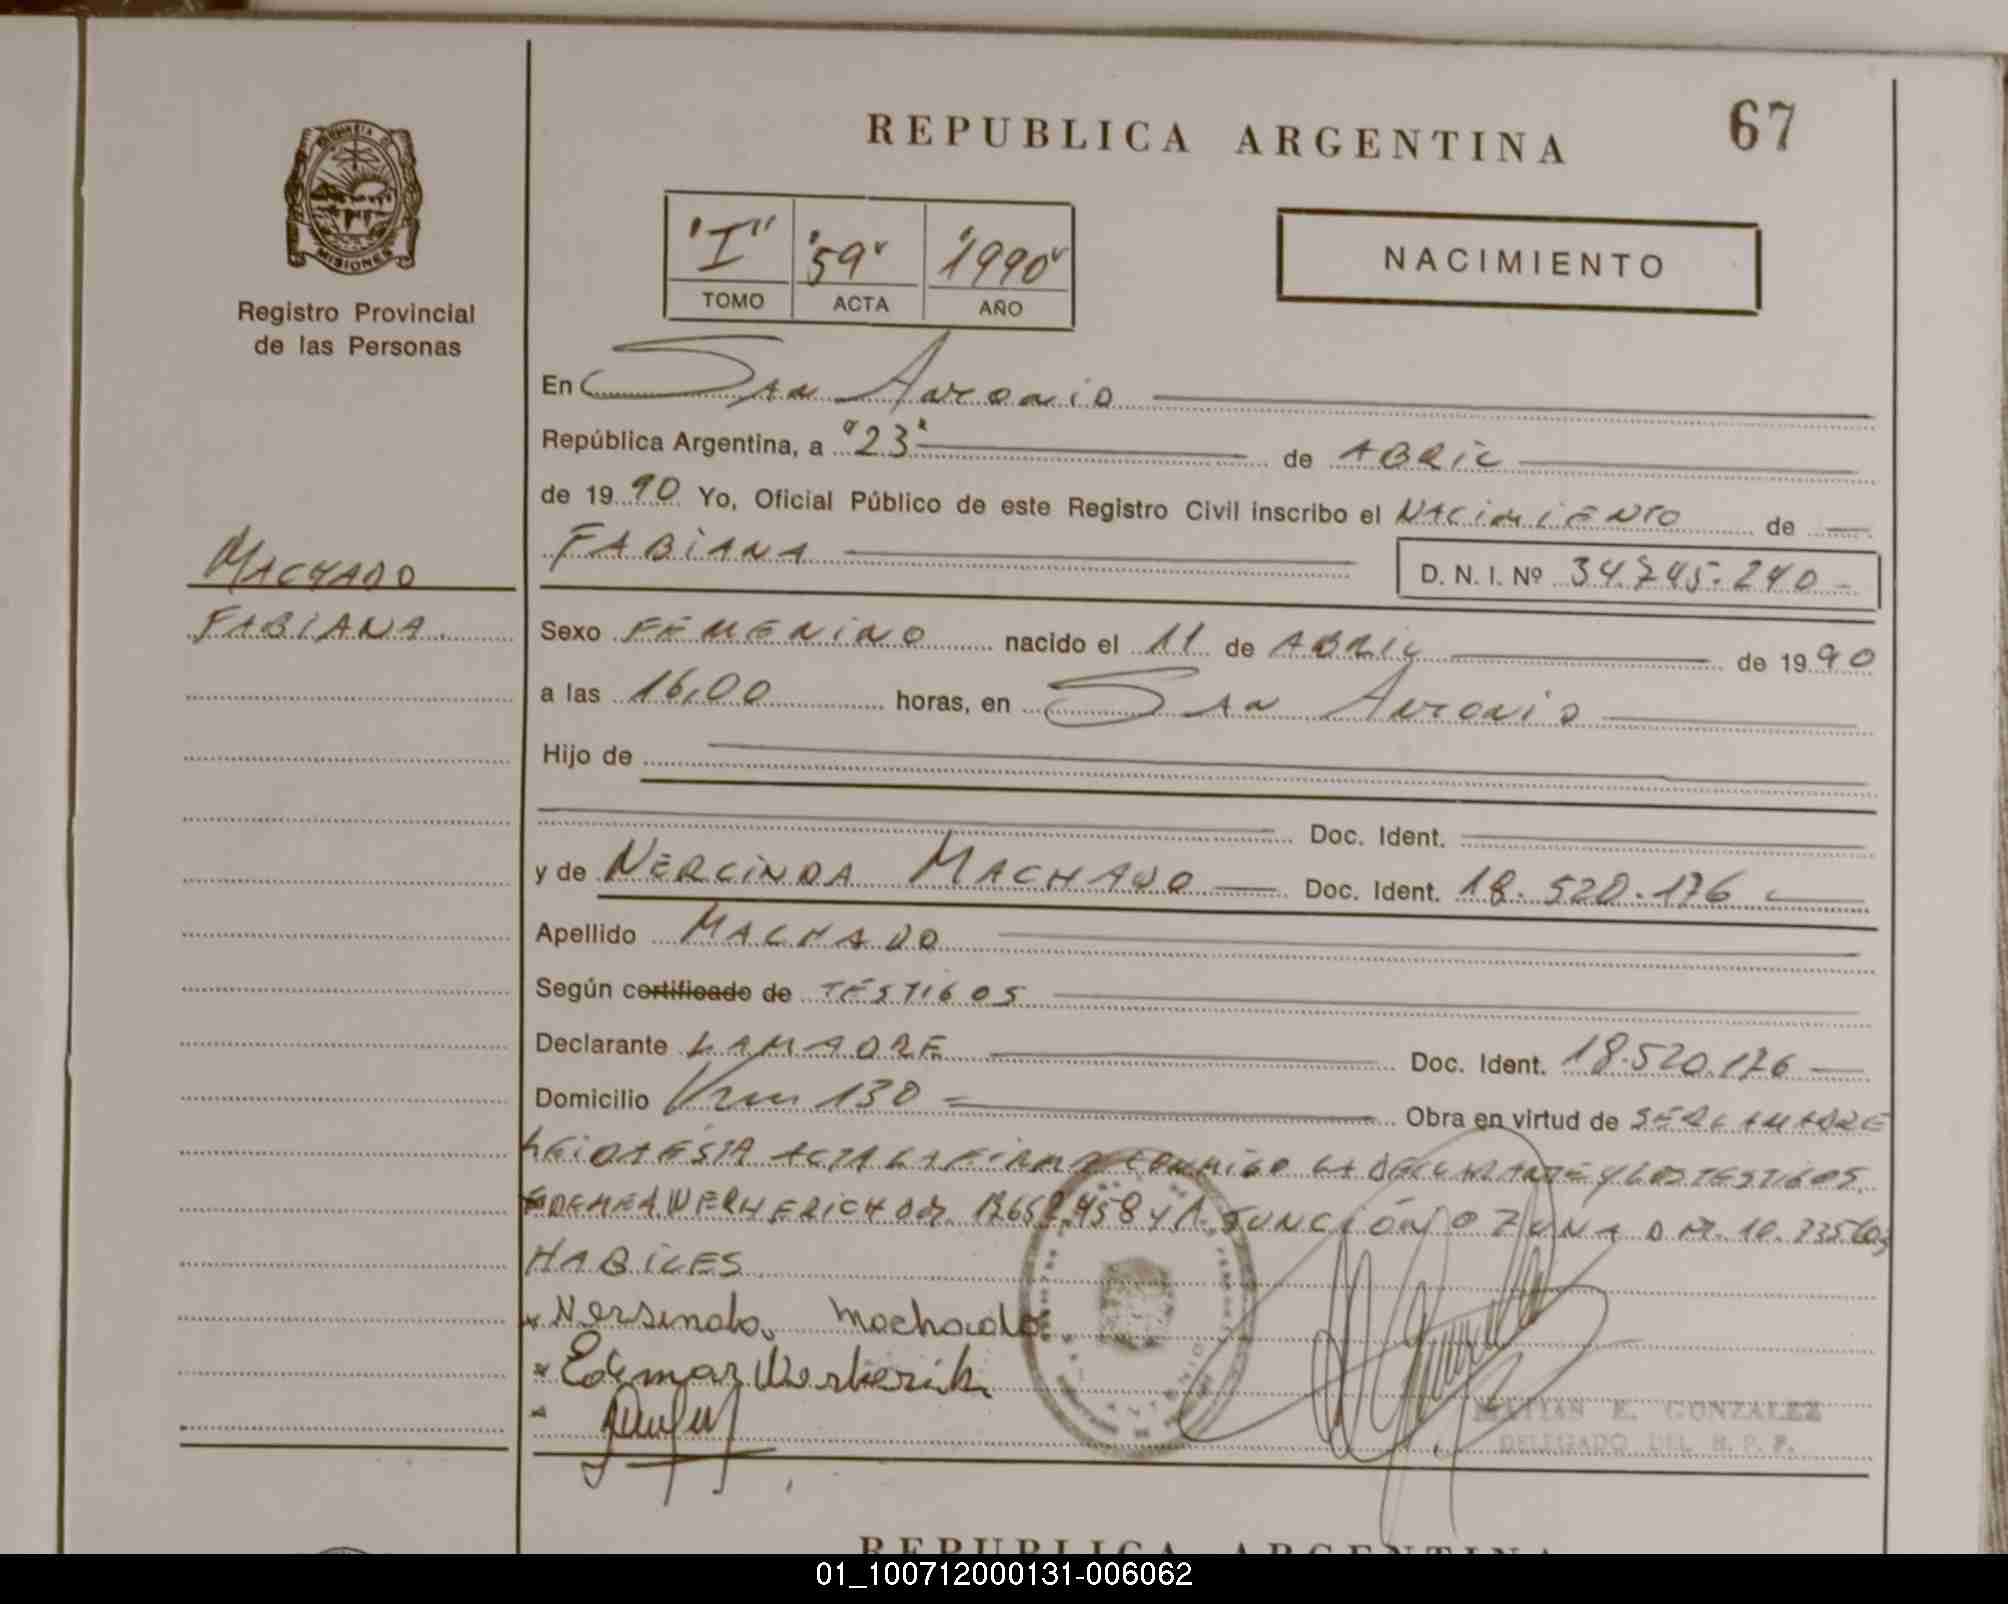 67
REPUBLICA ARGENTINA
PROVINCIA
MISIONES
Registro Provincial
de las Personas
"I" "59" "1990"
TOMO ACTA AÑO
NACIMIENTO
En San Antonio
República Argentina, a "23" de ABRIL
de 19 90 Yo, Oficial Público de este Registro Civil inscribo el NACIMIENTO de
MACHADO
FABIANA
FABIANA D. N. I. Nº 34.745.240
Sexo FEMENINO nacido el 11 de ABRIL de 19 90
a las 16,00 horas, en San Antonio
Hijo de
Doc. Ident.
y de NERCINDA MACHADO Doc. Ident. 18.520.176
Apellido MACHADO
Según certificado de TESTIGOS
Declarante LA MADRE Doc. Ident. 18.520.176
Domicilio Km 130 Obra en virtud de SER LA MADRE
LEIDA ESTA ACTA LA FIRMA CONMIGO LA DECLARANTE Y LOS TESTIGOS
WERHERICH Y ASUNCIÓN OZUNA
HABILES
Nersinda Machado
Edemar Werherich
MATIAS E. GONZALEZ
DELEGADO DEL R. P. P.
REPUBLICA ARGENTINA
01_100712000131-006062